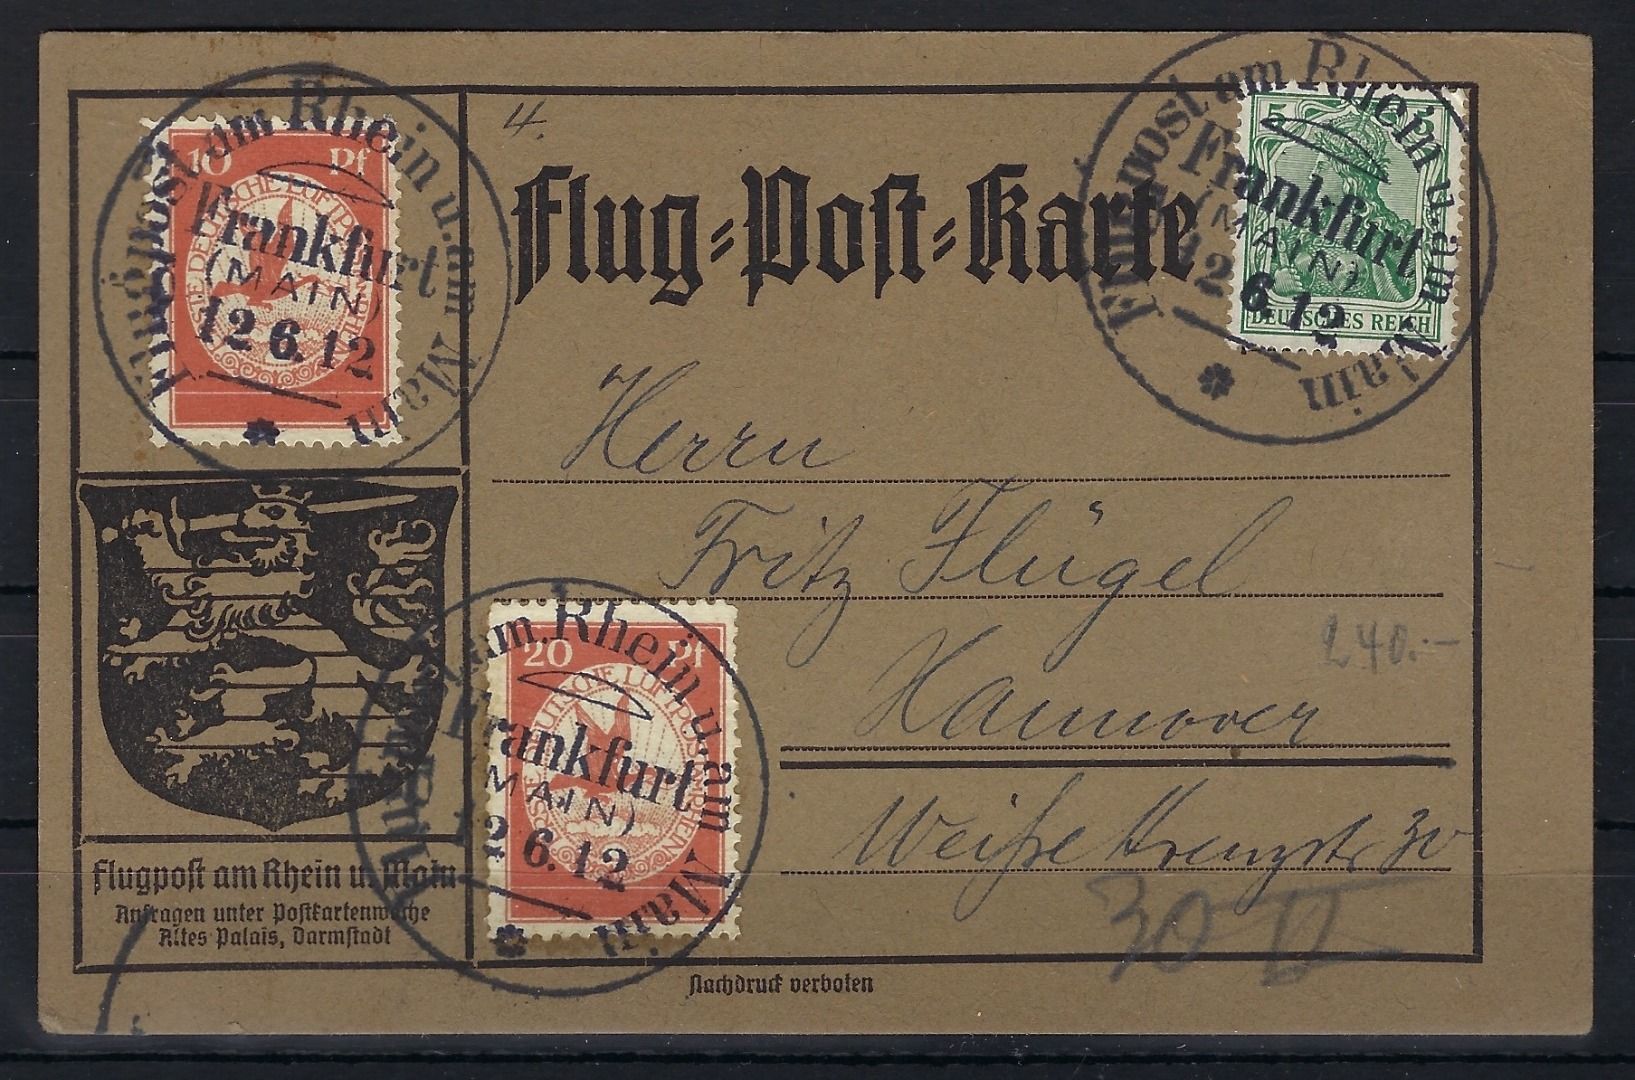 4.
Flug-Post-Karte
10 Pf
DEUTSCHE LUFTPOST
Flugpost am Rhein u. am Main
Frankfurt
(MAIN)
12.6.12
5 Pf
DEUTSCHES REICH
Flugpost am Rhein u. am Main
Frankfurt
(MAIN)
12.6.12
Herrn
Fritz Flügel
Hannover
Weiße Kreuzstr 30
240.-
30 II
20 Pf
Flugpost am Rhein u. am Main
Frankfurt
(MAIN)
12.6.12
Flugpost am Rhein u. Main
Anfragen unter Postkartenwoche
Altes Palais, Darmstadt
Nachdruck verboten